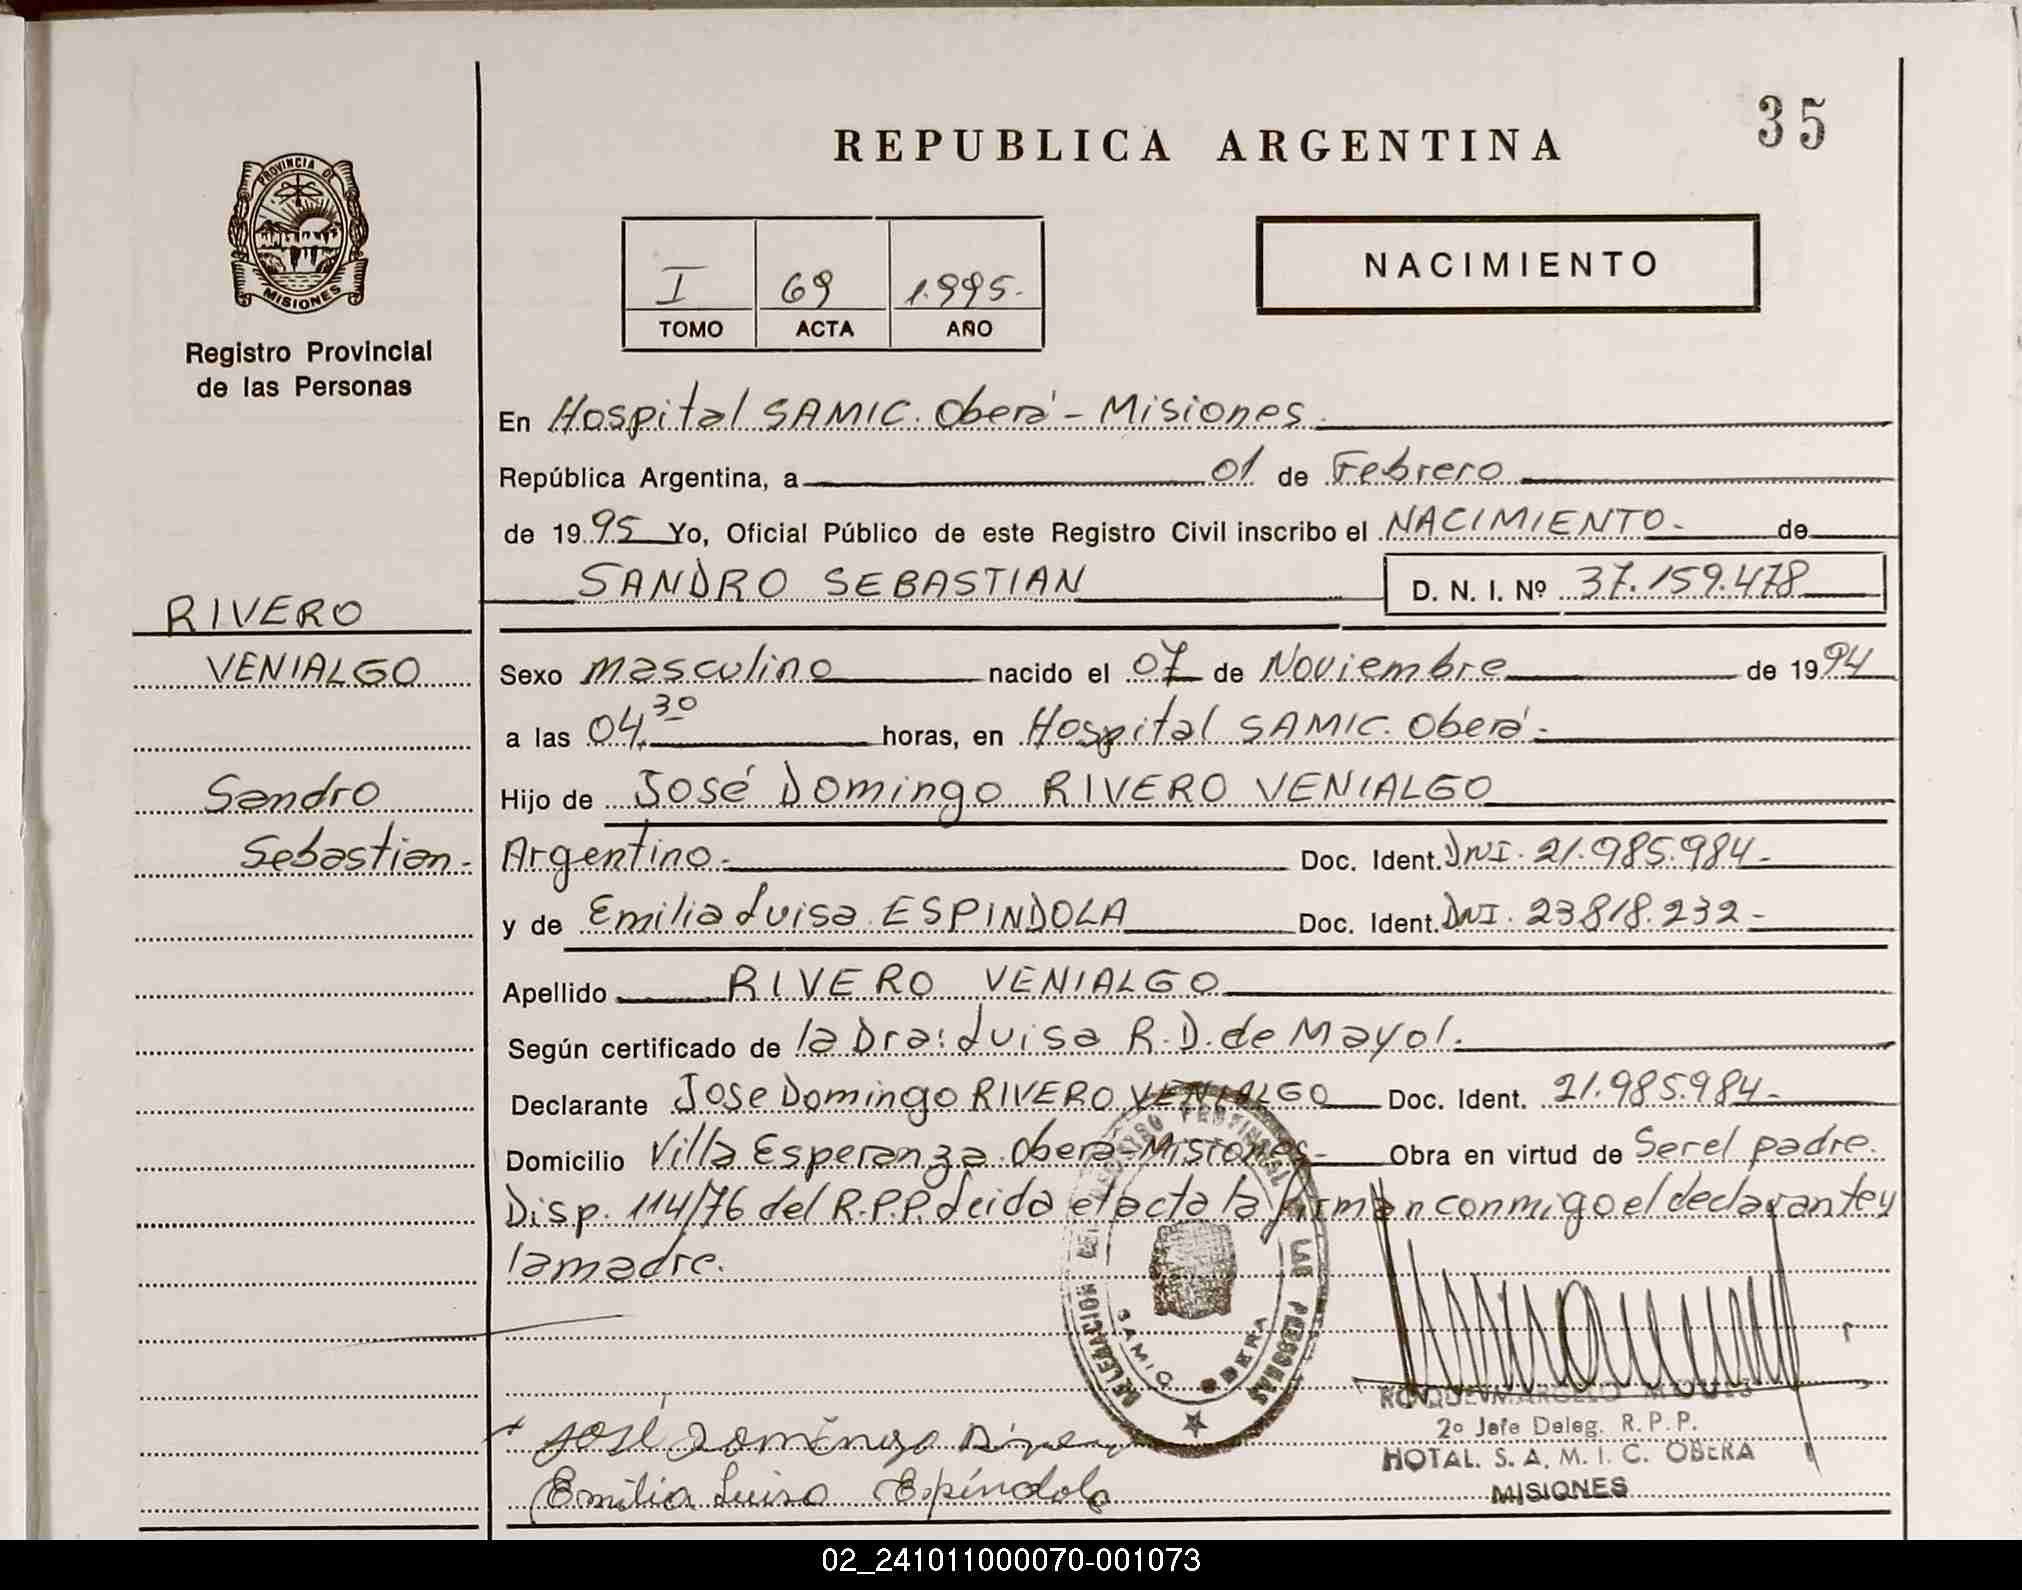 35
REPUBLICA ARGENTINA
PROVINCIA DE
MISIONES
Registro Provincial
de las Personas
NACIMIENTO
I 69 1.995.-
TOMO ACTA AÑO
En Hospital SAMIC. Oberá - Misiones.
República Argentina, a 01 de Febrero
de 1995 Yo, Oficial Público de este Registro Civil inscribo el NACIMIENTO.- de
SANDRO SEBASTIAN D. N. I. Nº 37.159.478
RIVERO
VENIALGO
Sandro
Sebastian.-
Sexo masculino nacido el 07 de Noviembre de 1994
a las 04.30 horas, en Hospital SAMIC. Oberá.-
Hijo de José Domingo RIVERO VENIALGO
Argentino.- Doc. Ident. DNI. 21.985.984.-
y de Emilia Luisa ESPINDOLA Doc. Ident. DNI. 23.818.232.-
Apellido RIVERO VENIALGO
Según certificado de la Dra: Luisa R.D. de Mayol.-
Declarante Jose Domingo RIVERO VENIALGO Doc. Ident. 21.985.984.-
Domicilio Villa Esperanza. Oberá-Misiones.- Obra en virtud de Ser el padre.
Disp. 114/76 del R.P.P. Leida el acta la firman conmigo el declarante y
la madre.
DELEGACION DEL REGISTRO PROVINCIAL DE LAS PERSONAS
SAMIC OBERA
José Domingo
Emilia Luisa Espíndola
2º Jefe Deleg. R. P. P.
HOTAL. S. A. M. I. C. OBERA
MISIONES
02_241011000070-001073